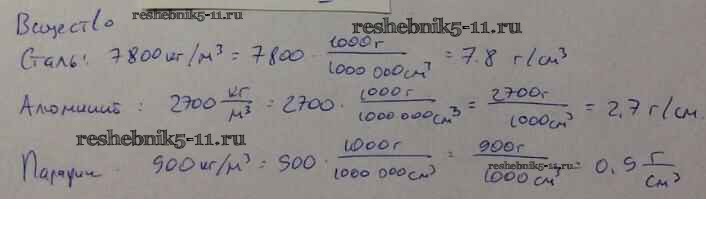 reshebnik5-11.ru
reshebnik5-11.ru
Вещество
Сталь: 7800 кг/м³ = 7800 · 1000г / 1000 000см³ = 7.8 г/см³
Алюминий: 2700 кг/м³ = 2700 · 1000г / 1000 000см³ = 2700г / 1000см³ = 2,7 г/см.
reshebnik5-11.ru
Парафин 900 кг/м³ = 900 · 1000г / 1000 000см³ = 900г / 1000см³ = 0,9 г/см³
reshebnik5-11.ru